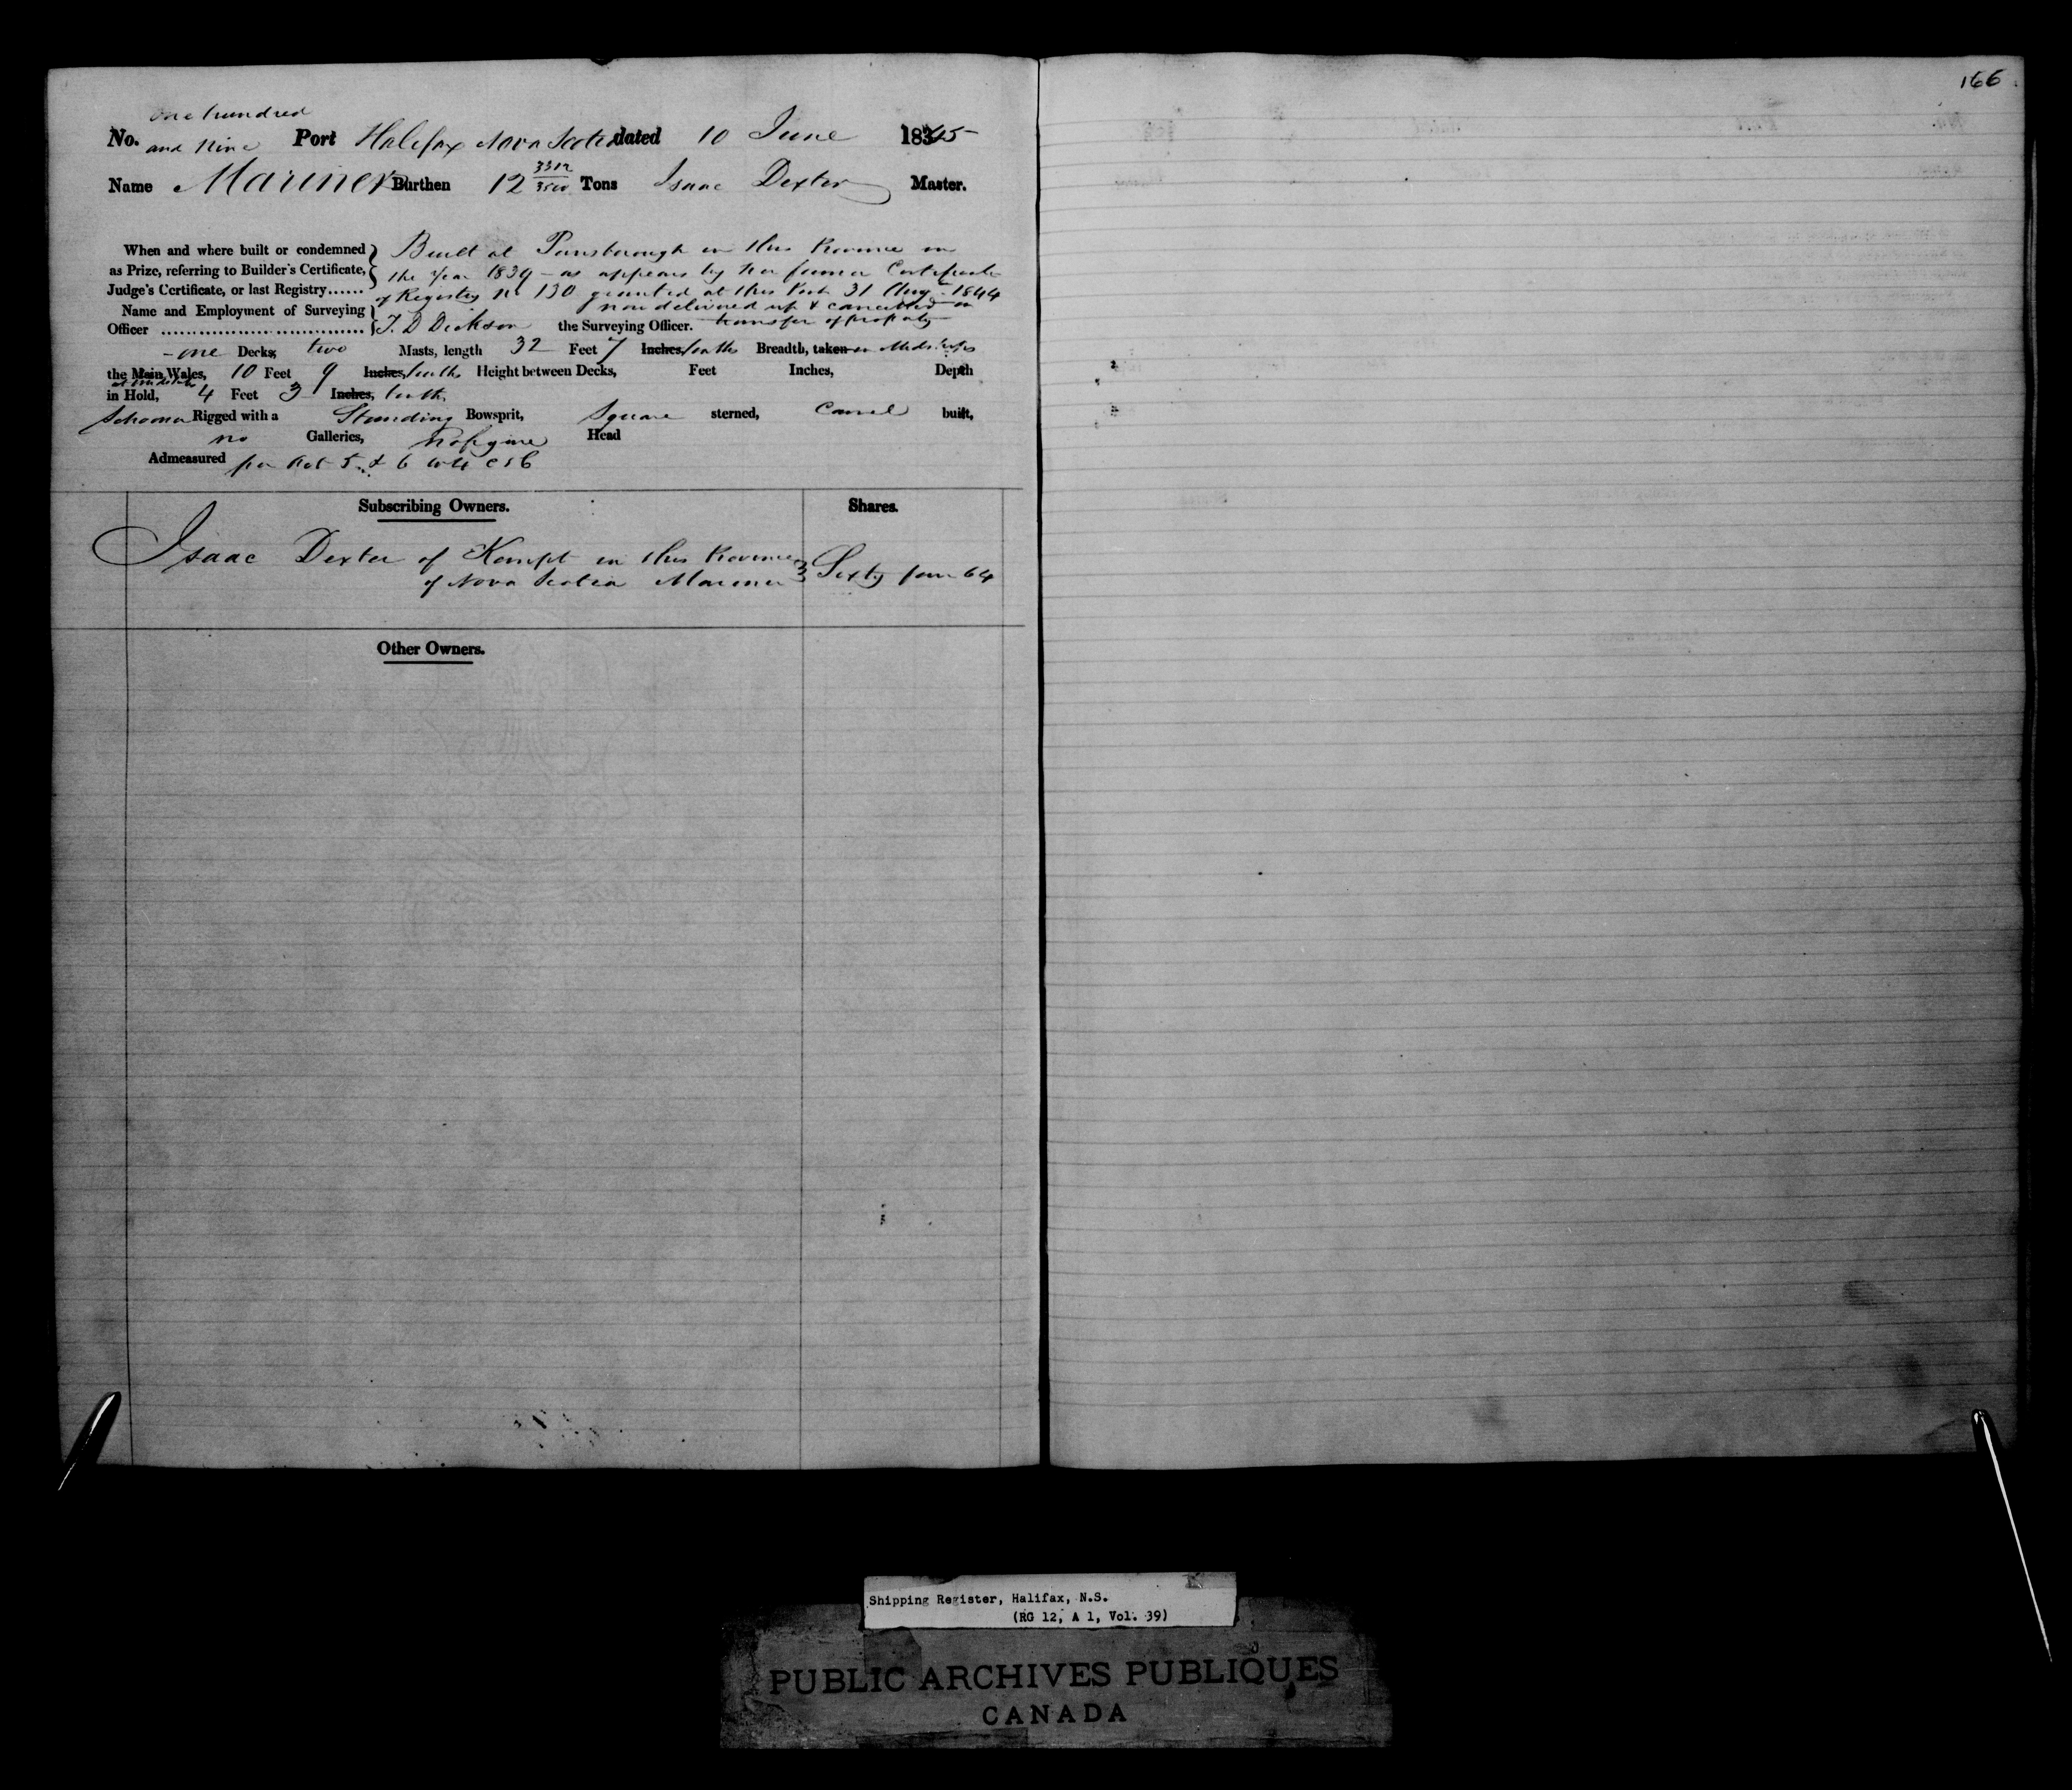 166
one hundred
No. and Nine Port Halifax Nova Scotia dated 10 June 1845
Name Mariner Burthen 12 3312/3500 Tons Isaac Dexter Master.
When and where built or condemned Built at Parrsborough in this Province in
as Prize, referring to Builder's Certificate, the Year 1839 - as appears by her former Certificate
Judge's Certificate, or last Registry...... of Registry No 130 granted at this Port 31 Aug 1844
Name and Employment of Surveying now delivered up & cancelled on
Officer ................................ T. D Dickson the Surveying Officer. transfer of property
- one Decks, two Masts, length 32 Feet 7 Inches, tenths Breadth, taken in Midships
the Main Wales, 10 Feet 9 Inches, tenths Height between Decks, Feet Inches, Depth
at midships
in Hold, 4 Feet 3 Inches, tenths
Schooner Rigged with a Standing Bowsprit, Square sterned, Carvel built,
no Galleries, no figure Head
Admeasured per Act 5 & 6 Will C 56
Subscribing Owners. Shares.
Isaac Dexter of Kempt in this Province
of Nova Scotia Mariner Sixty four 64
Other Owners.
Shipping Register, Halifax, N.S.
(RG 12, A 1, Vol. 39)
PUBLIC ARCHIVES PUBLIQUES
CANADA